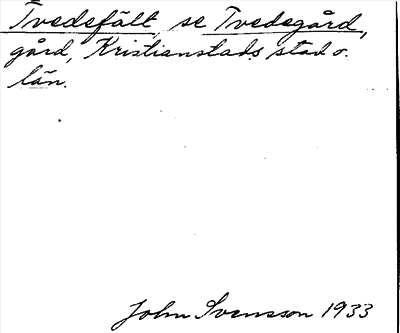 Tvedefält, se Tvedegård,
gård, Kristianstads stad o.
län.
John Svensson 1933